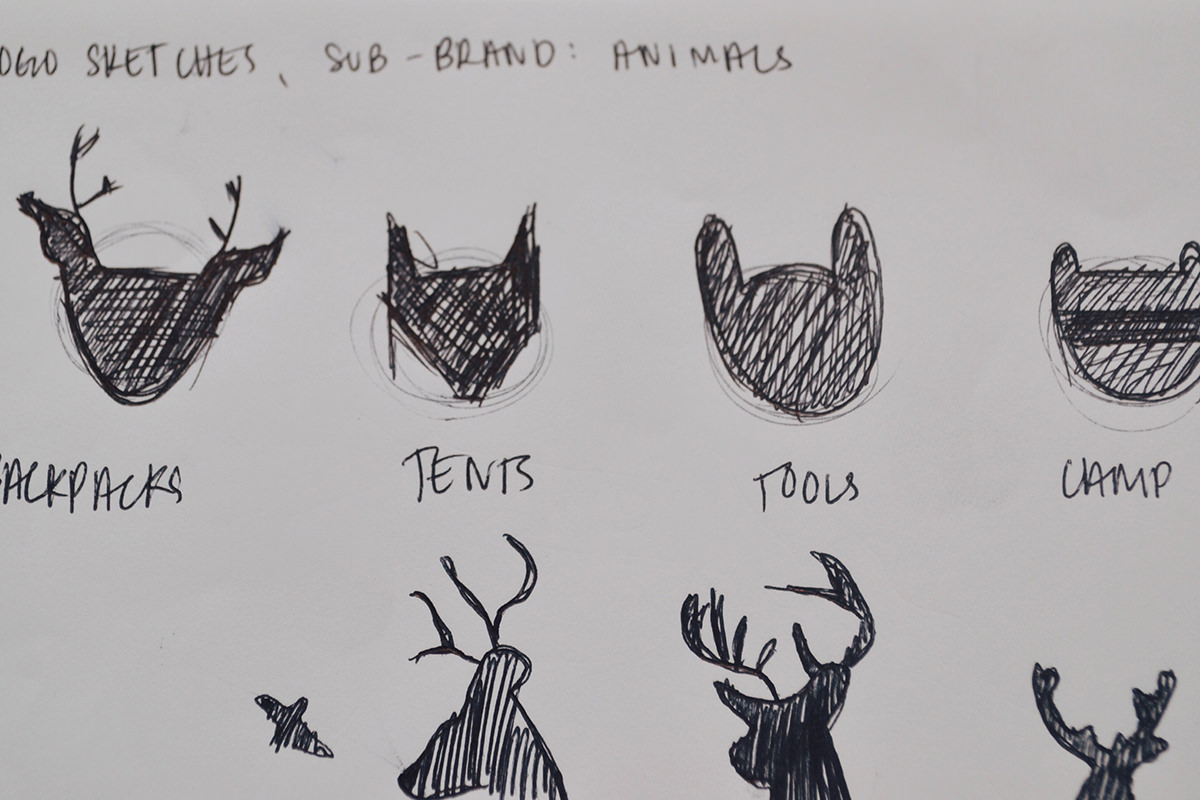 OGO SKETCHES, SUB-BRAND: ANIMALS
ACKPACKS TENTS TOOLS CAMP